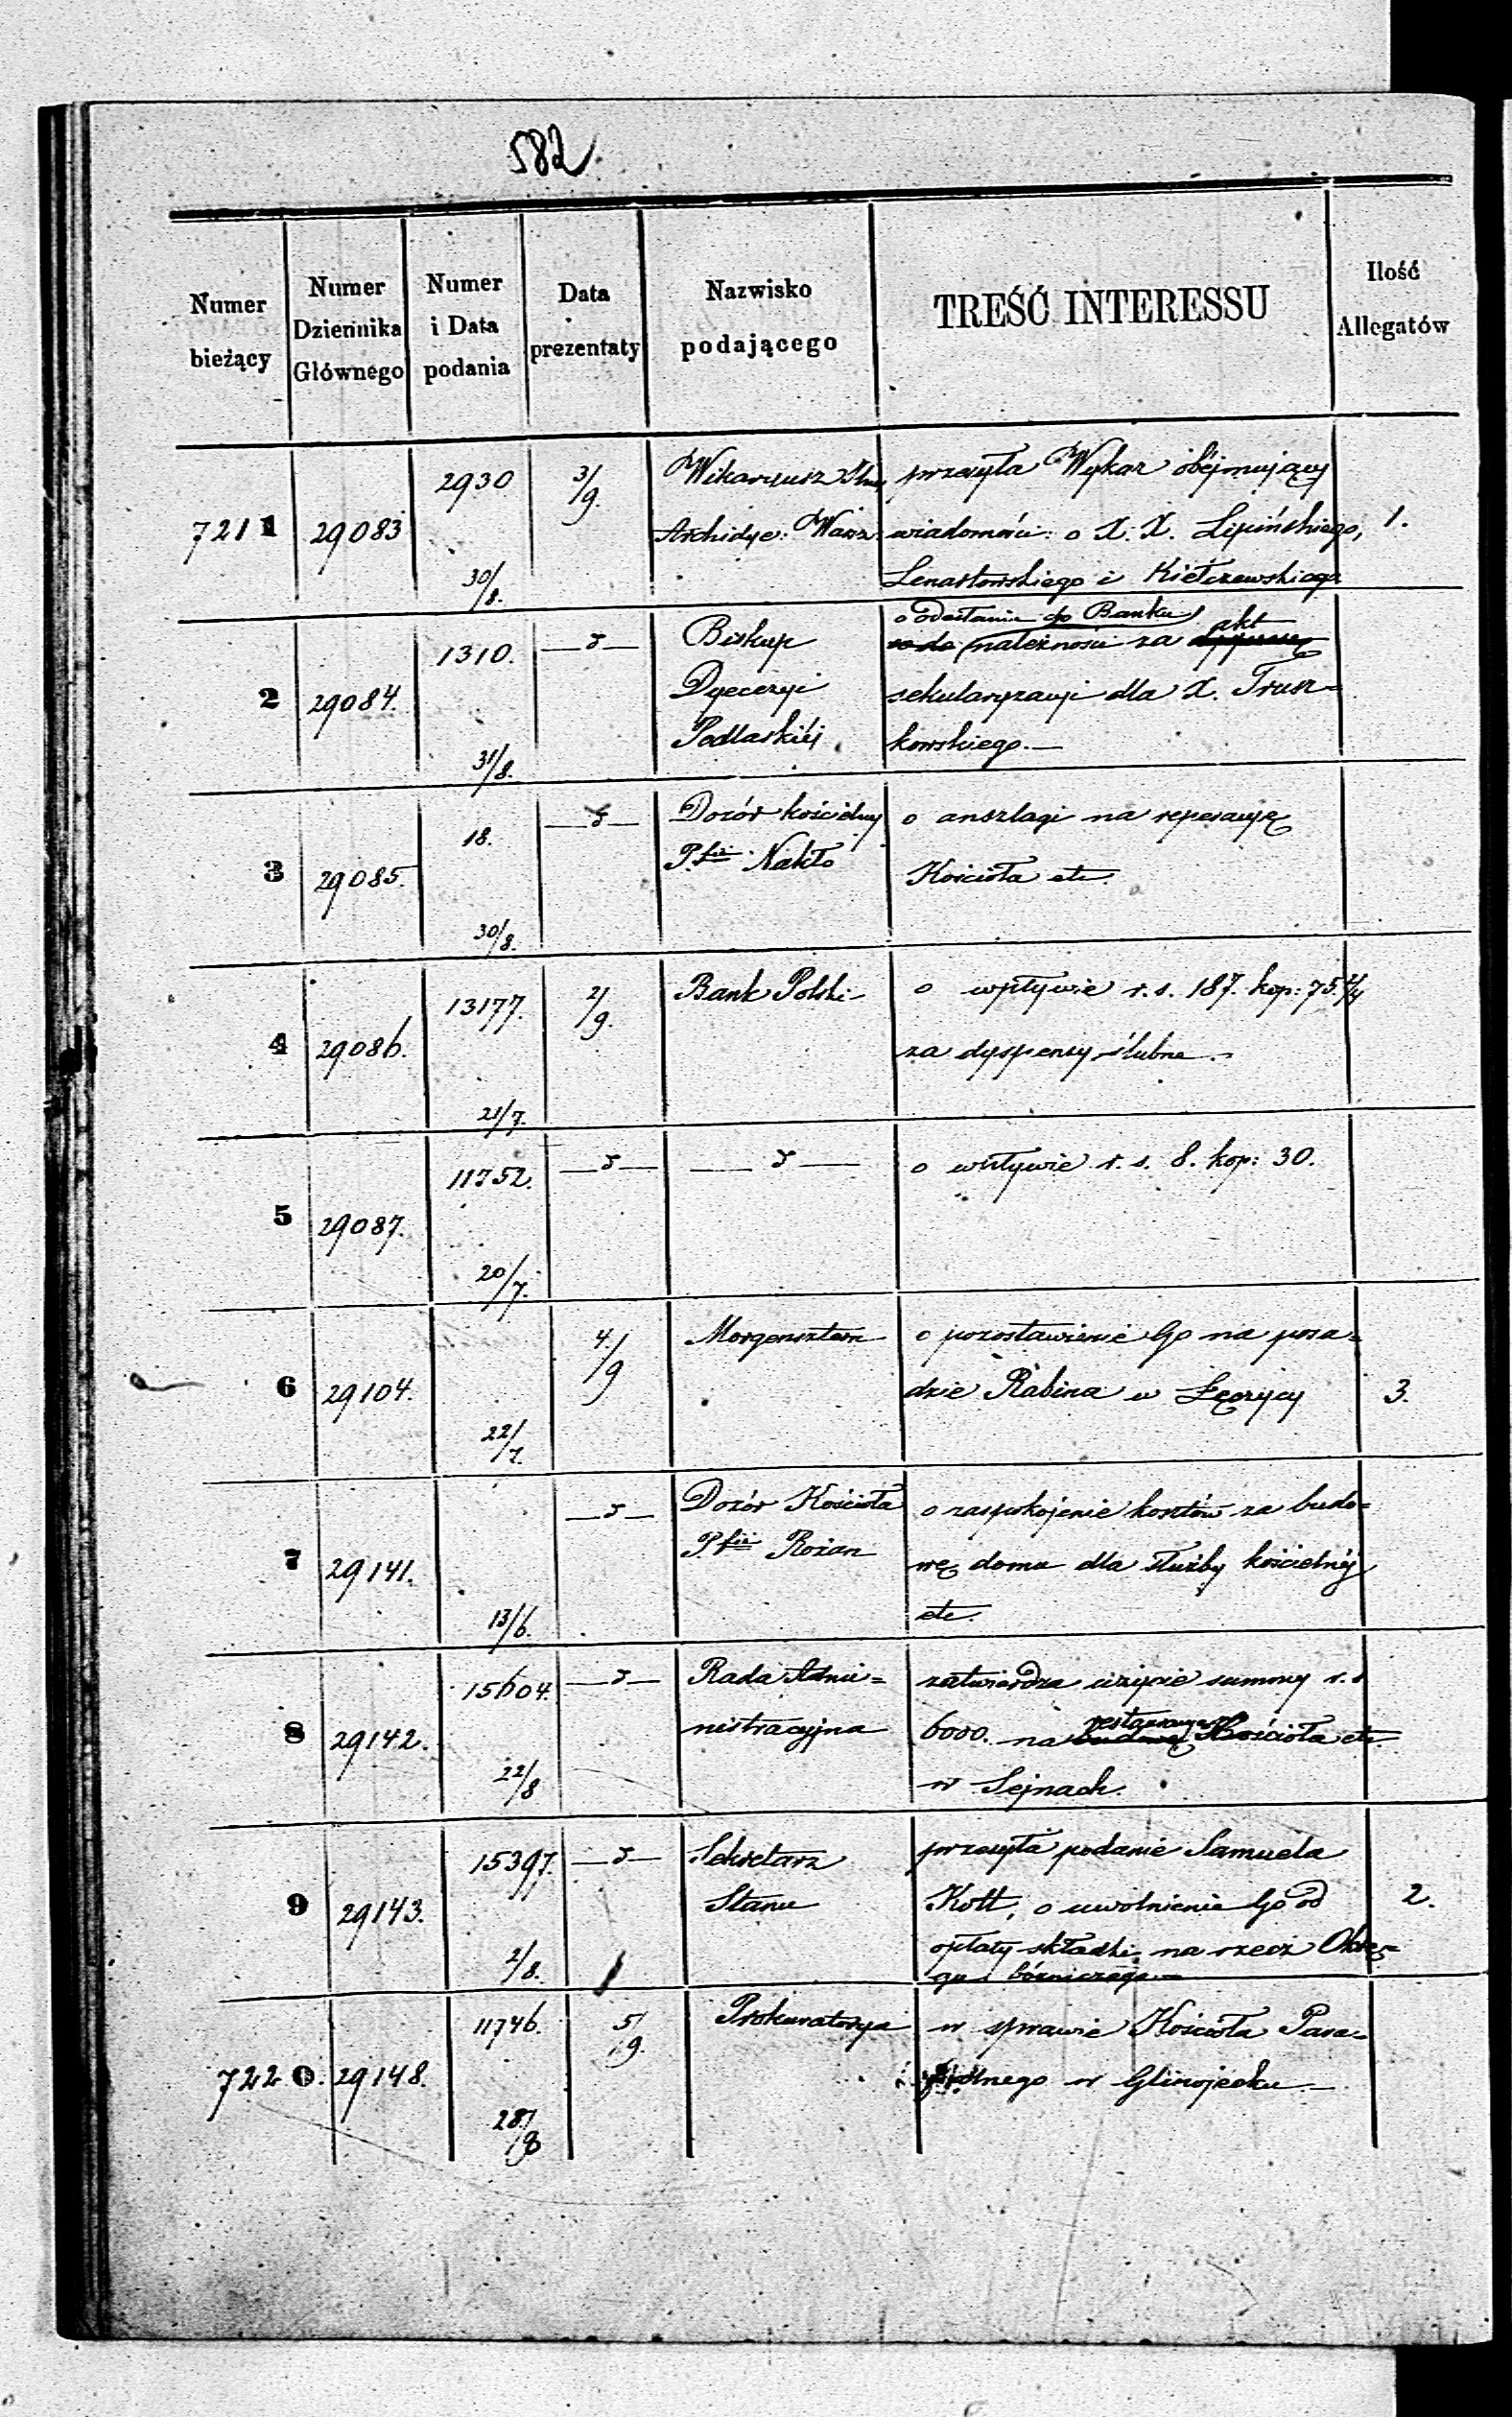 582
Numer bieżący
Numer Dziennika Głównego
Numer i Data podania
Data prezentaty
Nazwisko podającego
TREŚĆ INTERESSU
Ilość Allegatów
7211 29083 2930 30/8. 3/9.
Wikaryusz
Archidye: Warsz:
przesyła Wykaz obejmujący
wiadomości o X. X. Lipińskiego,
i Kiełczewskiego
1.
2 29084. 1310. 31/8. —d—
Biskup
Dyecezyi
Podlaskiéj
o odesłanie do Banku
należności za akt
sekularyzacyi dla X. Trusz=
kowskiego.—
3 29085. 18. 30/8. —d—
Dozór kościelny
P.fii Nakło
o anszlagi na reperacyę
Kościoła etc.
4 29086. 13177. 21/7. 2/9.
Bank Polski
o wpływie r. s. 187. kop: 75
za dyspensy ślubne.—
5 29087. 11752. 20/7. —d—
—d—
o wpływie r. s. 8. kop: 30.
6 29104. 22/7. 4/9
Morgensztern
o pozostawienie Go na posa=
dzie Rabina w Łęczycy
3.
7 29141. 13/6. —d—
Dozór Kościoła
P.fii Rożan
o zaspokojenie kosztów za budo=
wę domu dla służby kościelnéj
etc.
8 29142. 15604. 22/8 —d—
Rada Admi=
nistracyjna
zatwierdza użycie summy r. s
restauracyę
6000. na budowę Kościoła etc
w Sejnach.
9 29143. 15397. 2/8. —d—
Sekretarz
Stanu
przesyła podanie Samuela
Kott, o uwolnienie Go od
opłaty składki na rzecz Okrę=
gu bóżniczego.—
2.
7220. 29148. 11746. 28/8 5/9.
Prokuratorya
w sprawie Kościoła Para=
fialnego w Glinojecku.—